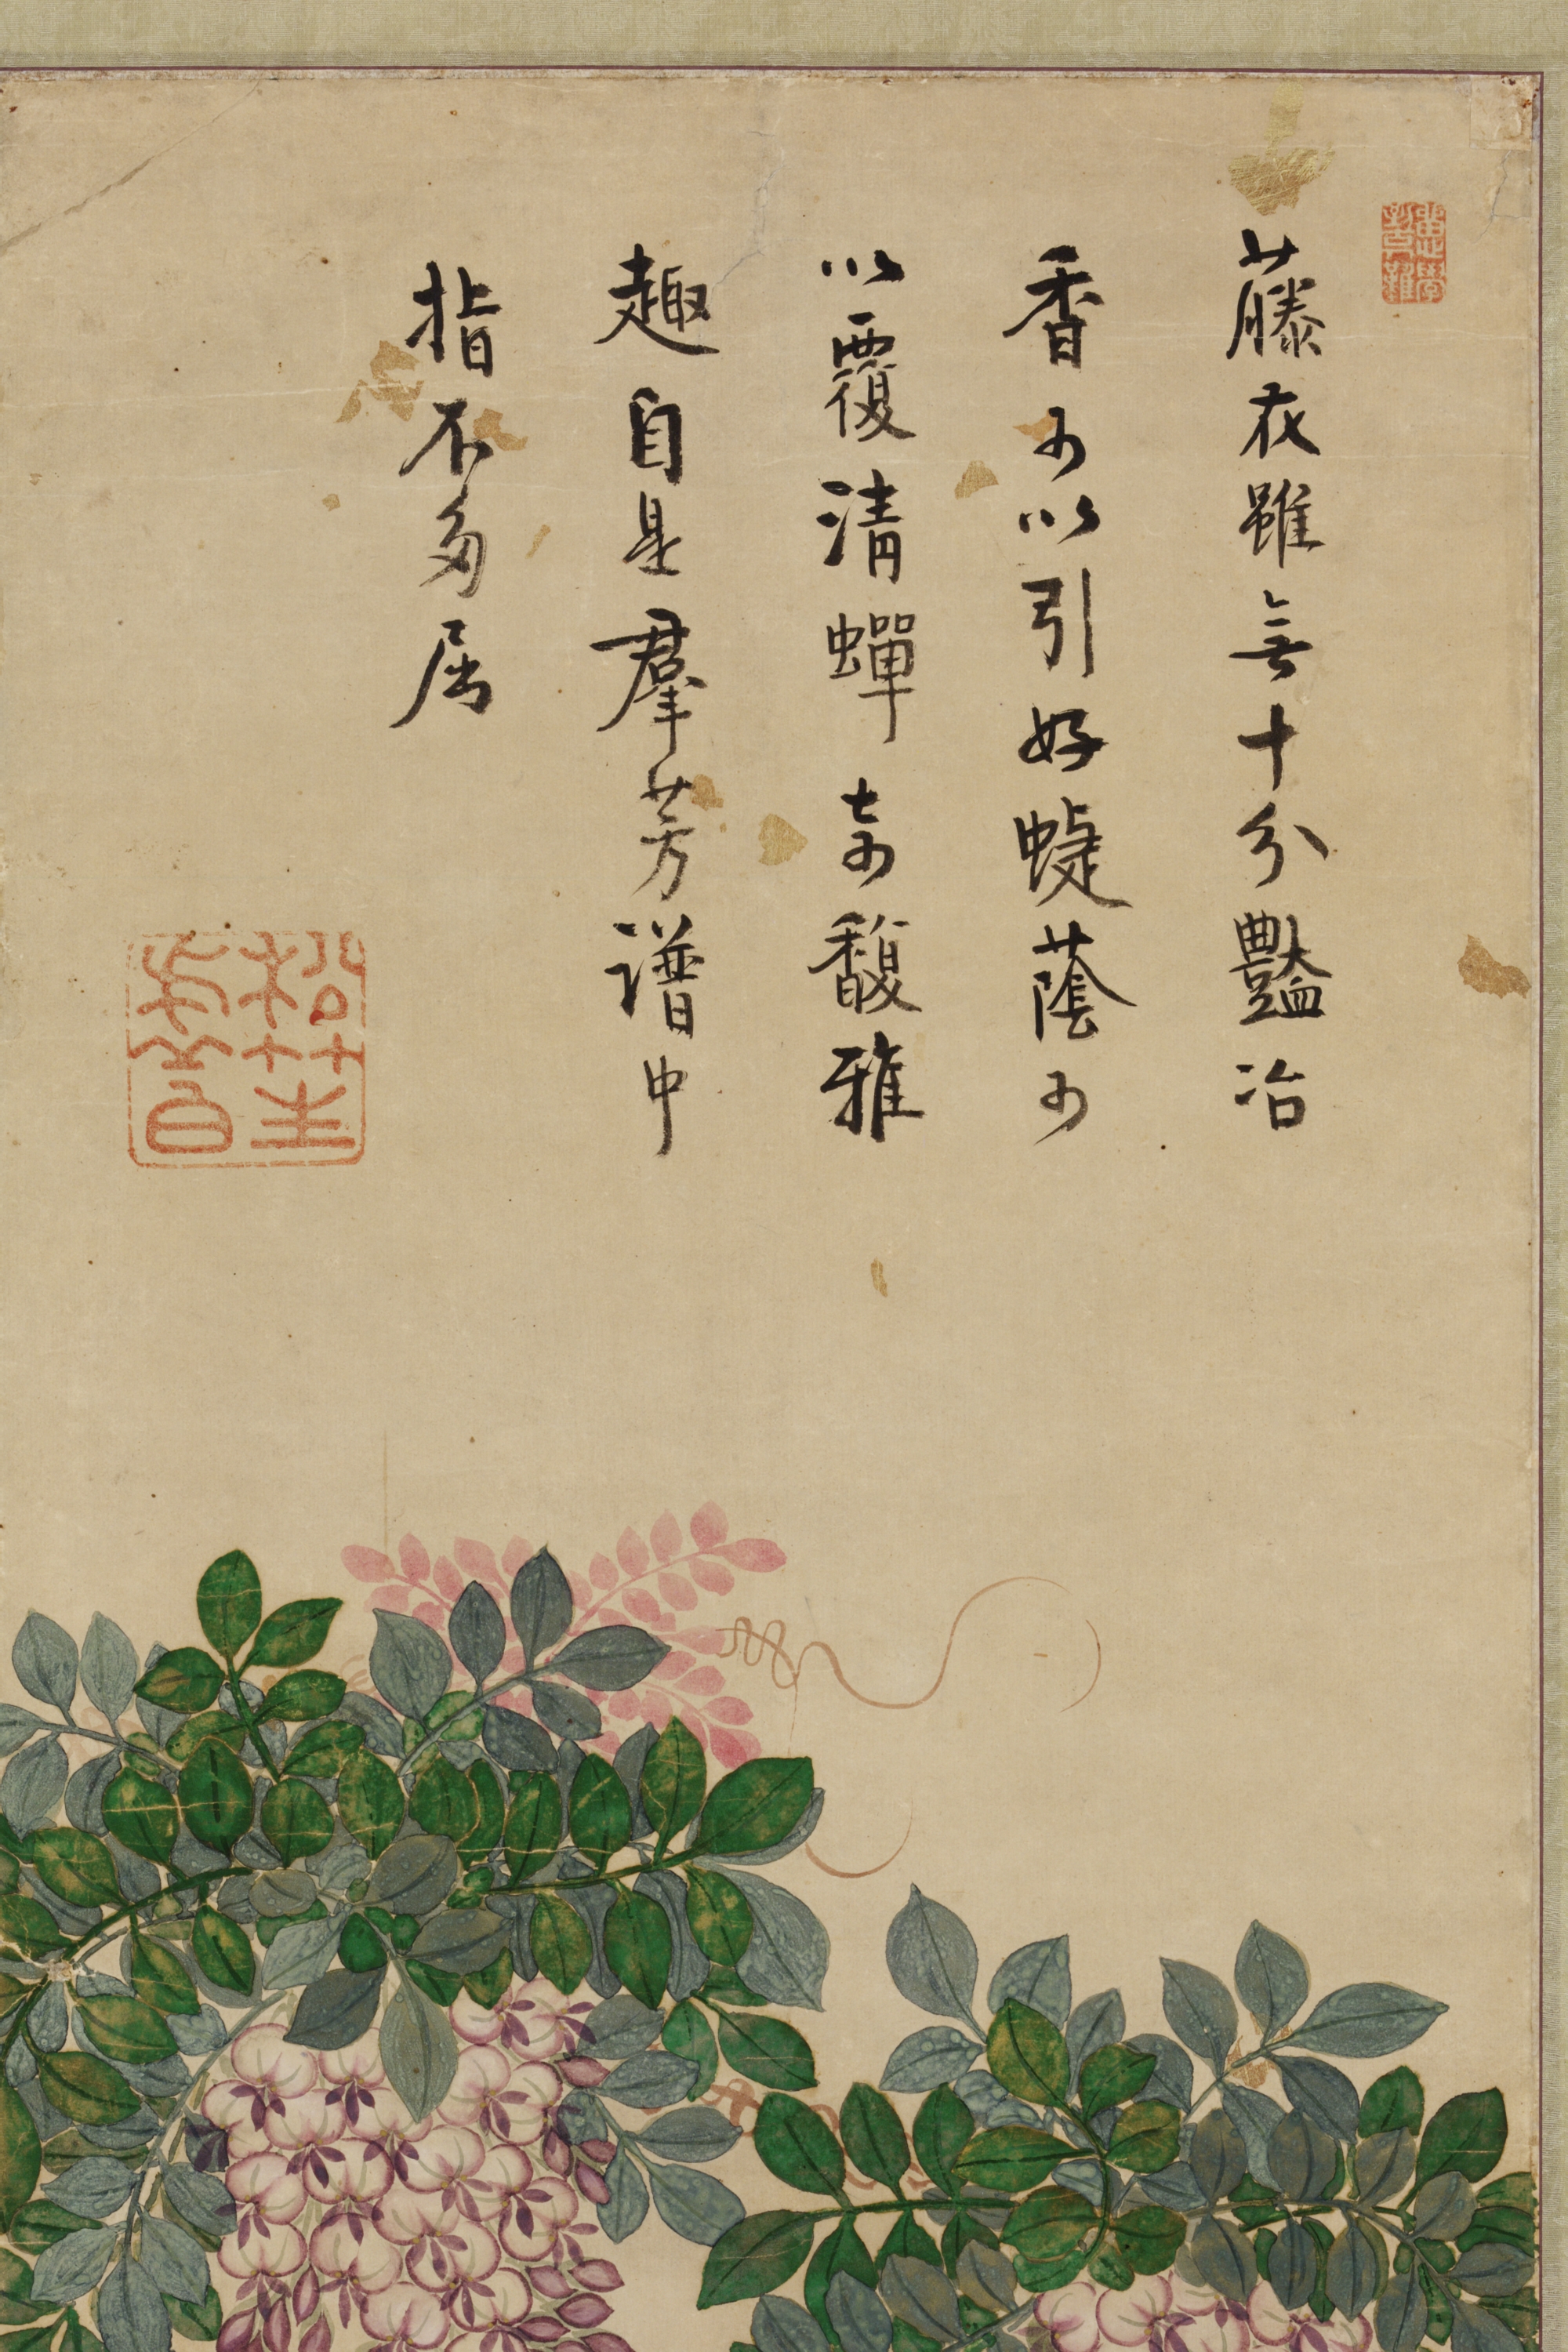 藤花雖無十分豔冶
香可以引好蜨蔭可
以覆清蟬奇馥雅
趣自是羣芳譜中
指不多屈